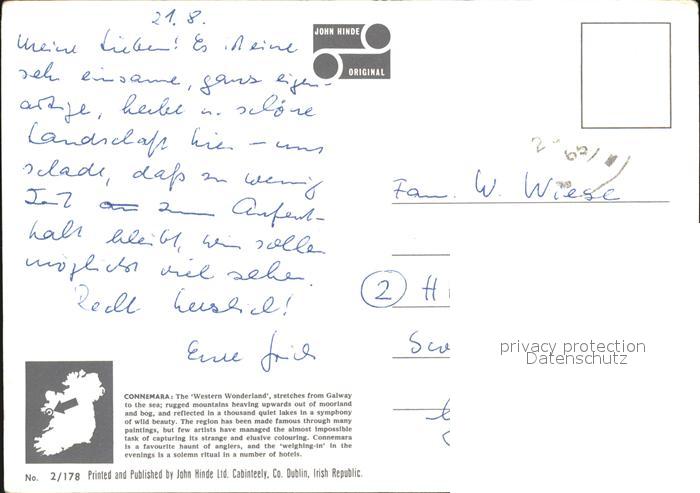 21.8.
Meine Lieben! Es ist eine
sehr einsame, ganz eigen-
artige, herbe u. schöne
Landschaft hier – nur
schade, daß zu wenig
Zeit zum Aufent-
halt bleibt, wir sollen
möglichst viel sehen.
Recht herzlich!
Eure
JOHN HINDE
ORIGINAL
Fam. W. Wiese
2 H
privacy protection
Datenschutz
CONNEMARA: The 'Western Wonderland', stretches from Galway
to the sea; rugged mountains heaving upwards out of moorland
and bog, and reflected in a thousand quiet lakes in a symphony
of wild beauty. The region has been made famous through many
paintings, but few artists have managed the almost impossible
task of capturing its strange and elusive colouring. Connemara
is a favourite haunt of anglers, and the 'weighing-in' in the
evenings is a solemn ritual in a number of hotels.
No. 2/178 Printed and Published by John Hinde Ltd. Cabinteely, Co. Dublin, Irish Republic.